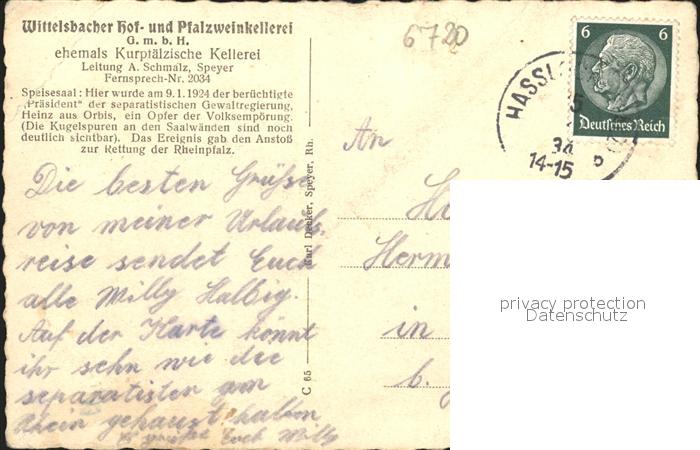 Wittelsbacher Hof- und Pfalzweinkellerei
G. m. b. H.
ehemals Kurpfälzische Kellerei
Leitung A. Schmalz, Speyer
Fernsprech-Nr. 2034
Speisesaal: Hier wurde am 9.1.1924 der berüchtigte
„Präsident" der separatistischen Gewaltregierung,
Heinz aus Orbis, ein Opfer der Volksempörung.
(Die Kugelspuren an den Saalwänden sind noch
deutlich sichtbar). Das Ereignis gab den Anstoß
zur Rettung der Rheinpfalz.
Die besten Grüße
von meiner Urlaubs-
reise sendet Euch
alle Willy Halbig.
Auf der Karte könnt
ihr sehn wie die
separatisten am
Rhein gehaust haben
Euch Willy
Karl Decker, Speyer, Rh.
C 65
6720
6 6
Deutsches Reich
HASSL
34
14-15
An
Herm
in
b.
privacy protection
Datenschutz